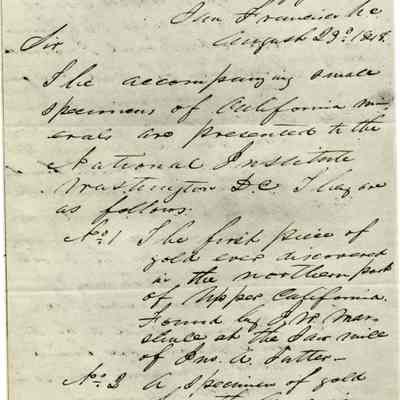 San Francisco &c
August 23d. 1848.
Sir
The accompanying small
specimens of California min-
erals are presented to the
National Institute
Washington D.C. They are
as follows.
No. 1 The first piece of
gold ever discovered
in the northern part
of Upper California
Found by J. W. Mar-
shall at the Saw mill
of Jno. A. Sutter—
No. 2 A specimen of gold